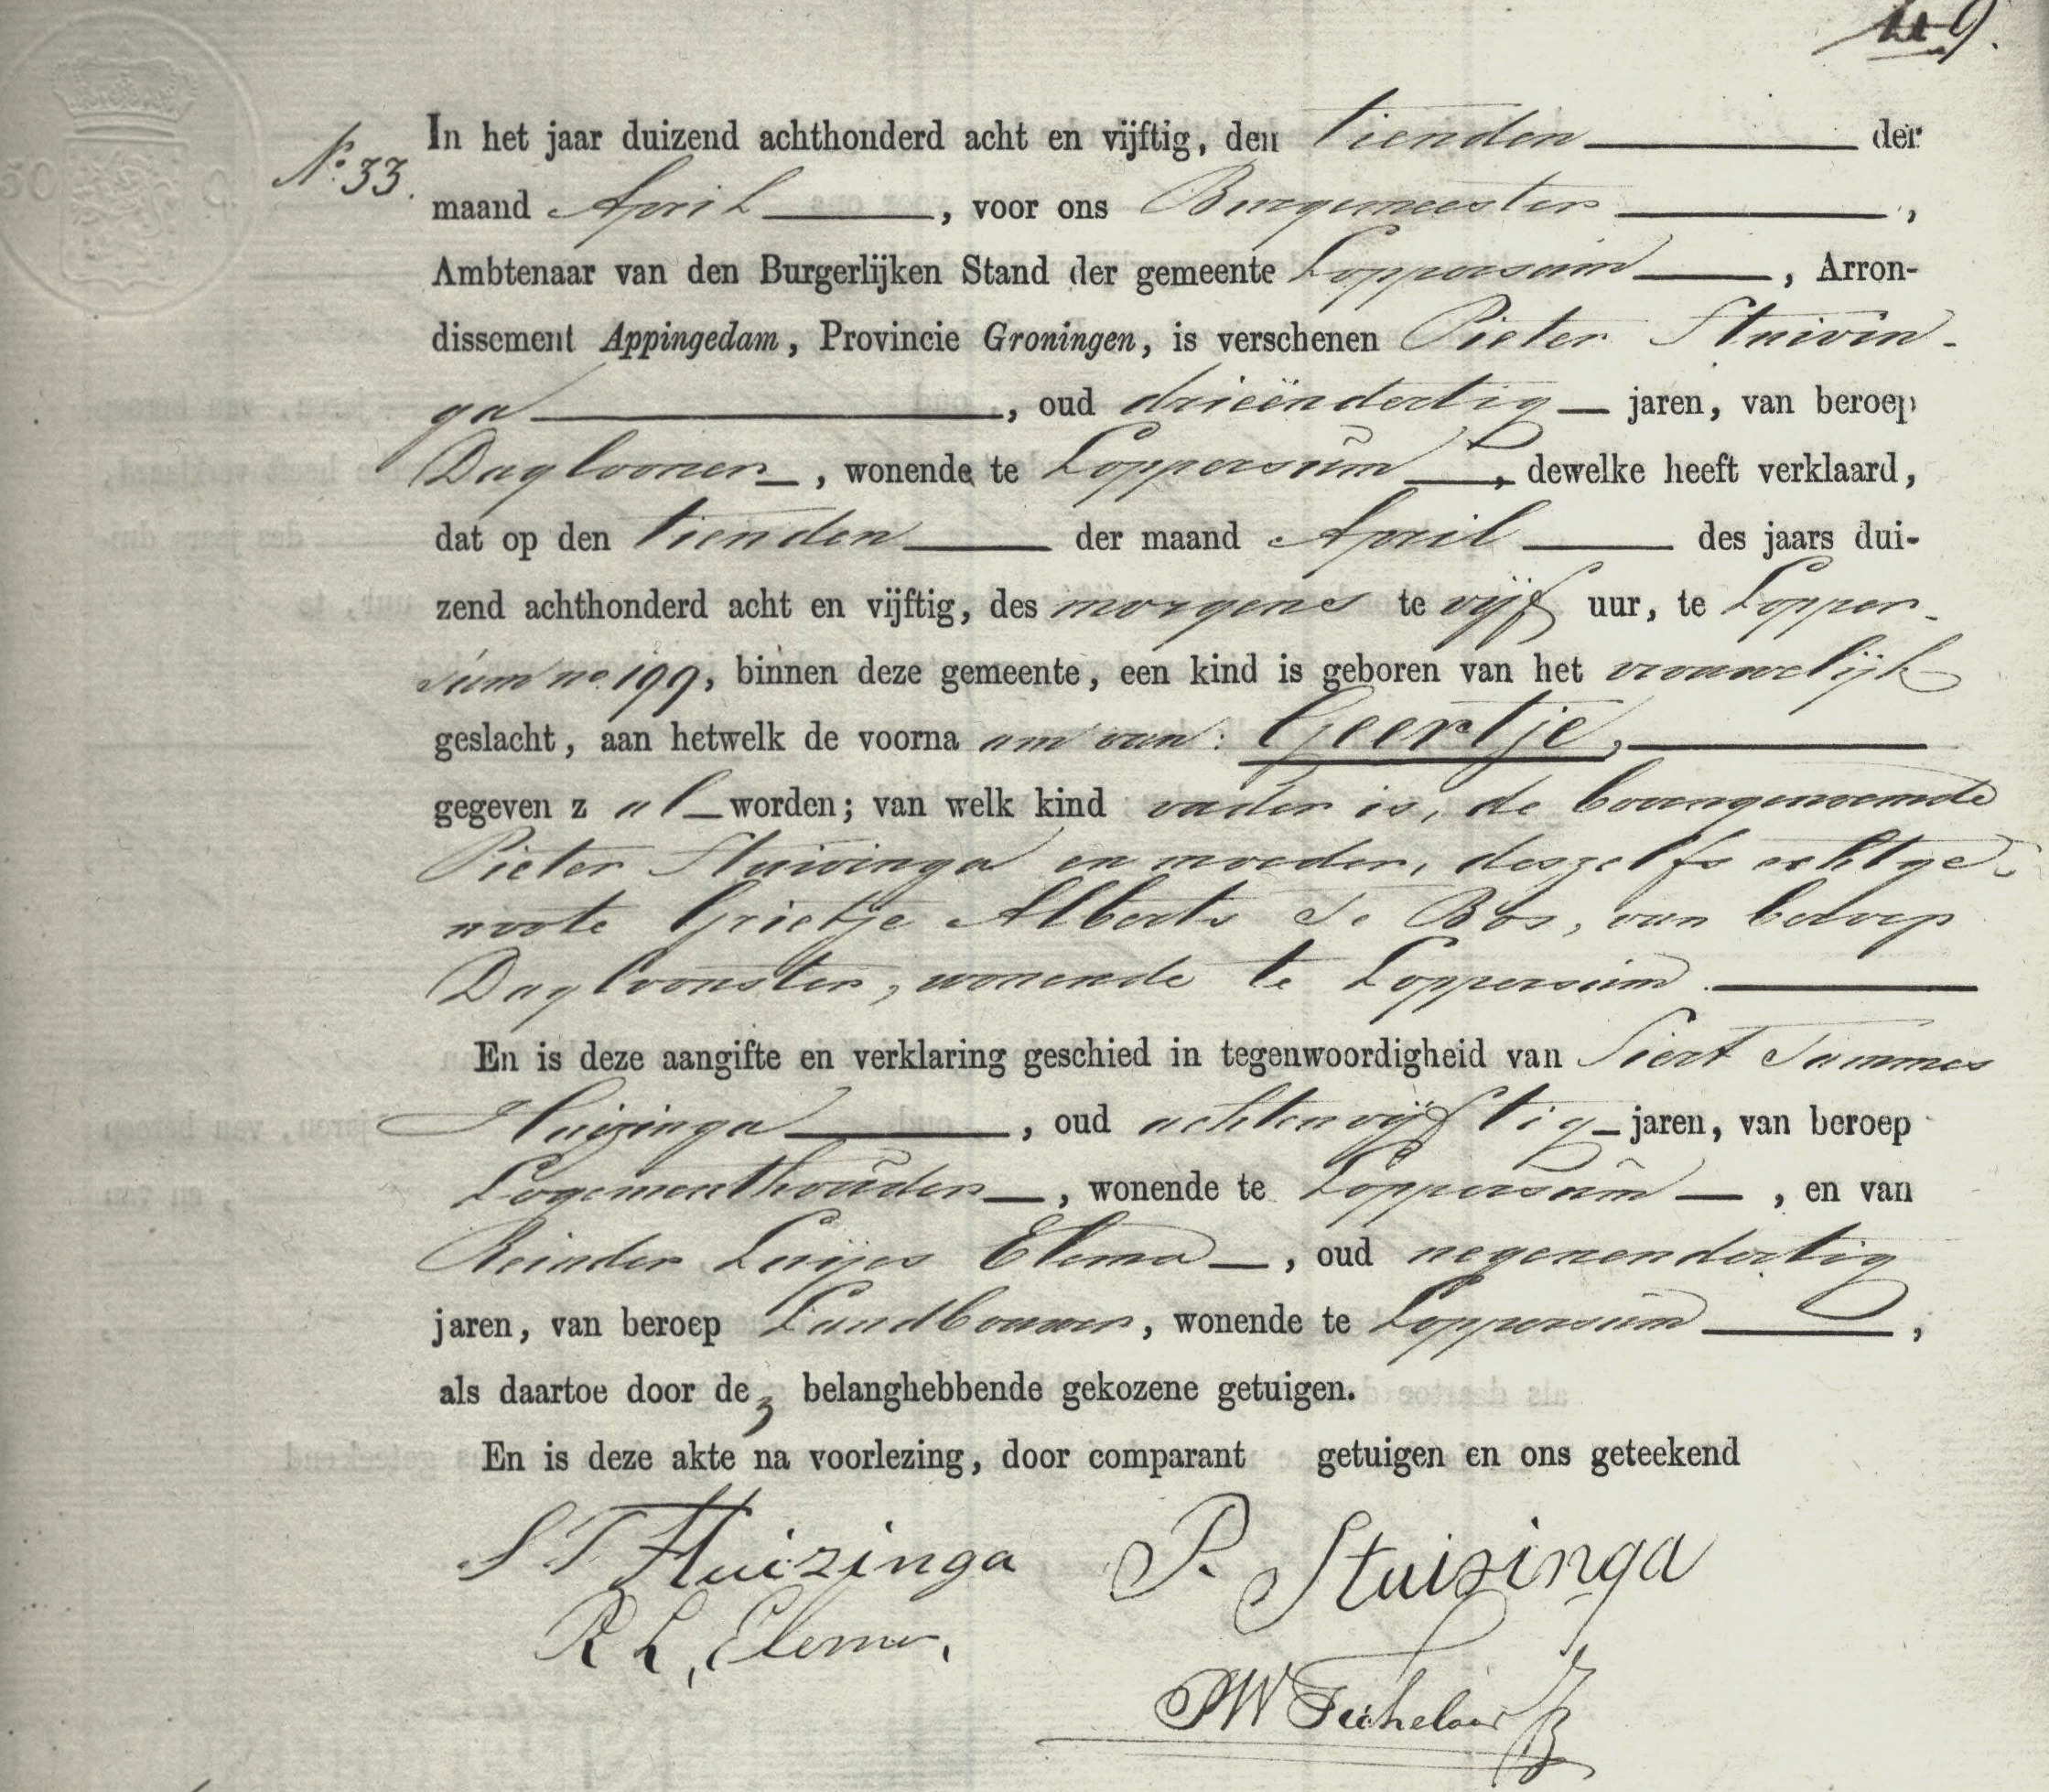 49.
50 C
N.o 33.
In het jaar duizend achthonderd acht en vijftig, den tienden der
maand April, voor ons Burgemeester,
Ambtenaar van den Burgerlijken Stand der gemeente Loppersum, Arron-
dissement Appingedam, Provincie Groningen, is verschenen Pieter Stuivin-
ga, oud drieëndertig jaren, van beroep
Daglooner, wonende te Loppersum, dewelke heeft verklaard,
dat op den tienden der maand April des jaars dui-
zend achthonderd acht en vijftig, des morgens te vijf uur, te Lopper-
sum no. 199, binnen deze gemeente, een kind is geboren van het vrouwelijk
geslacht, aan hetwelk de voorna am van: Geertje,
gegeven z al worden; van welk kind vader is, de bovengenoemde
Pieter Stuivinga en moeder, deszelfs echtge-
noote Grietje Alberts de Bos, van beroep
Dagloonster, wonende te Loppersum.
En is deze aangifte en verklaring geschied in tegenwoordigheid van Siert Tammes
Huizinga, oud achtenvijftig jaren, van beroep
Logementhouder, wonende te Loppersum, en van
Reinder Luijes Elema, oud negenendertig
jaren, van beroep Landbouwer, wonende te Loppersum,
als daartoe door dez belanghebbende gekozene getuigen.
En is deze akte na voorlezing, door comparant getuigen en ons geteekend
S T Huizinga P. Stuivinga
R L, Elema,